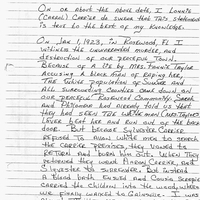 On or about the above date I, Lonnie
(Carrol) Carrier do swear that this statement
is true to the best of my knowledge.
On Jan 1, 1923, in Rosewood Fl I
witness the unnecessary murder, and
destruction of our peaceful town.
Because of a lie by Mrs. Fannie Taylor
Accusing a black man of raping her.
The white population of Sumner and
All surrounding counties came down on
our peaceful Rosewood Community. Sarah
and Philoman had already told us that
they had seen the white man (Mrs Taylors)
lover beat her and run out of the back
door. But because Sylvester Carrier
refused to allow white men to search
the Carrier premises, they vowed to
return and burn him out. When they
returned they were
Sylvester to surrender but instead
a blood bath ensued and Cousin
carried the children into the woods where
we finally walked to Gainsville. I was